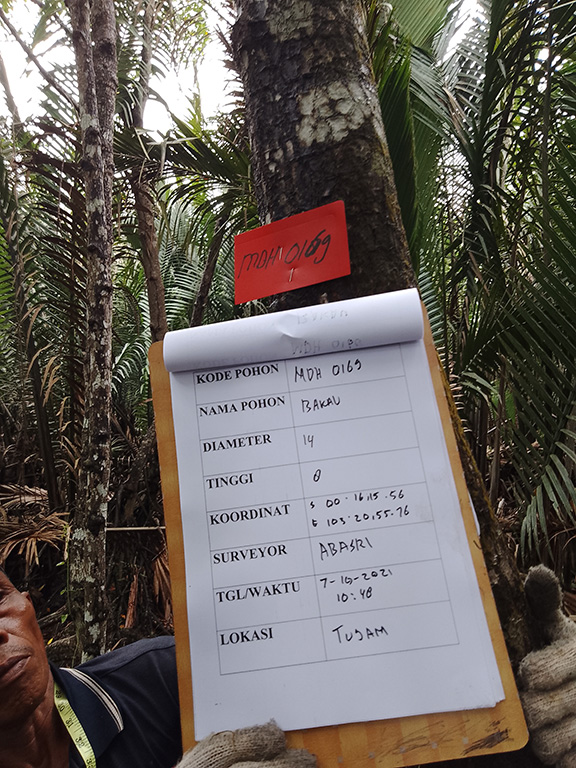 MDH 0169
KODE POHON MDH 0169
NAMA POHON BAKAU
DIAMETER 14
TINGGI 8
KOORDINAT S 00.16,15.56
E 103.20,55.76
SURVEYOR ABASRI
TGL/WAKTU 7-10-2021
10:48
LOKASI TUJAM